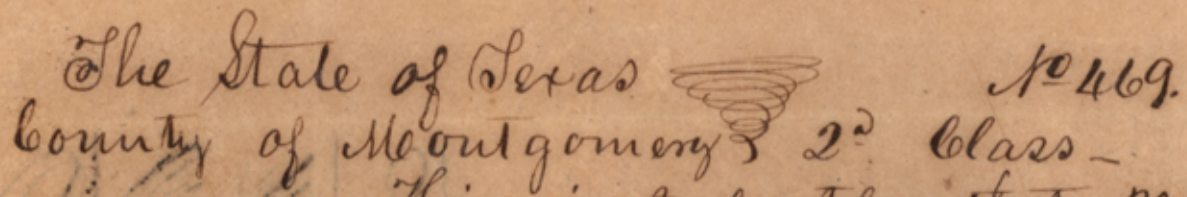 The State of Texas No 469.
County of Montgomery 2d Class -